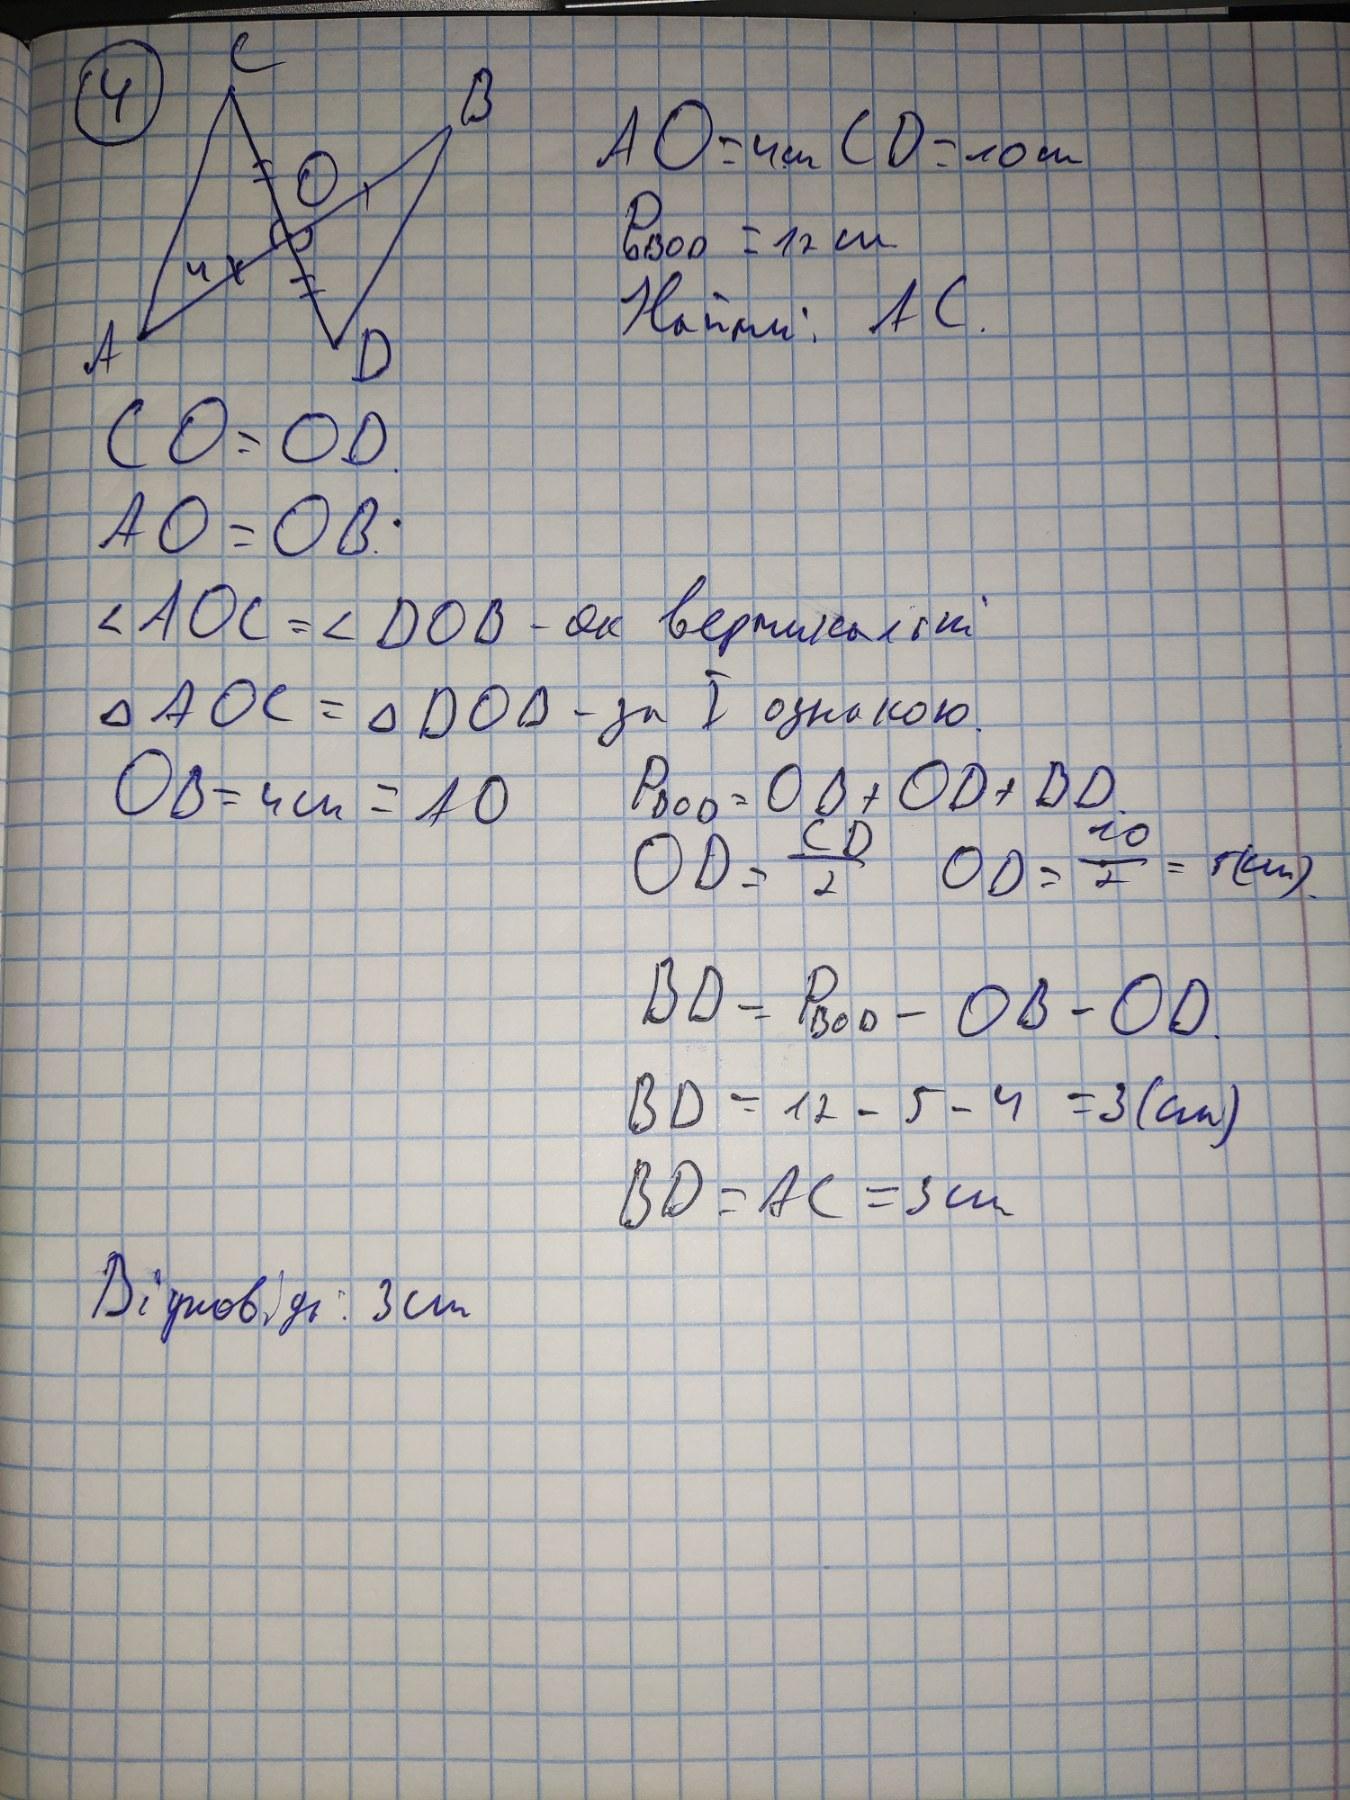 4
C
B
O
4
A
D
AO = 4см CD = 10см
P BOD = 12 см
Найти: AC.
CO = OD.
AO = OB.
< AOC = < DOB - як вертикальні
△ AOC = △ DOB - за I ознакою.
OB = 4см = AO
P BOD = OB + OD + BD.
OD = CD/2 OD = 10/2 = 5(см).
BD = P BOD - OB - OD.
BD = 12 - 5 - 4 = 3(см)
BD = AC = 3см
Відповідь: 3см